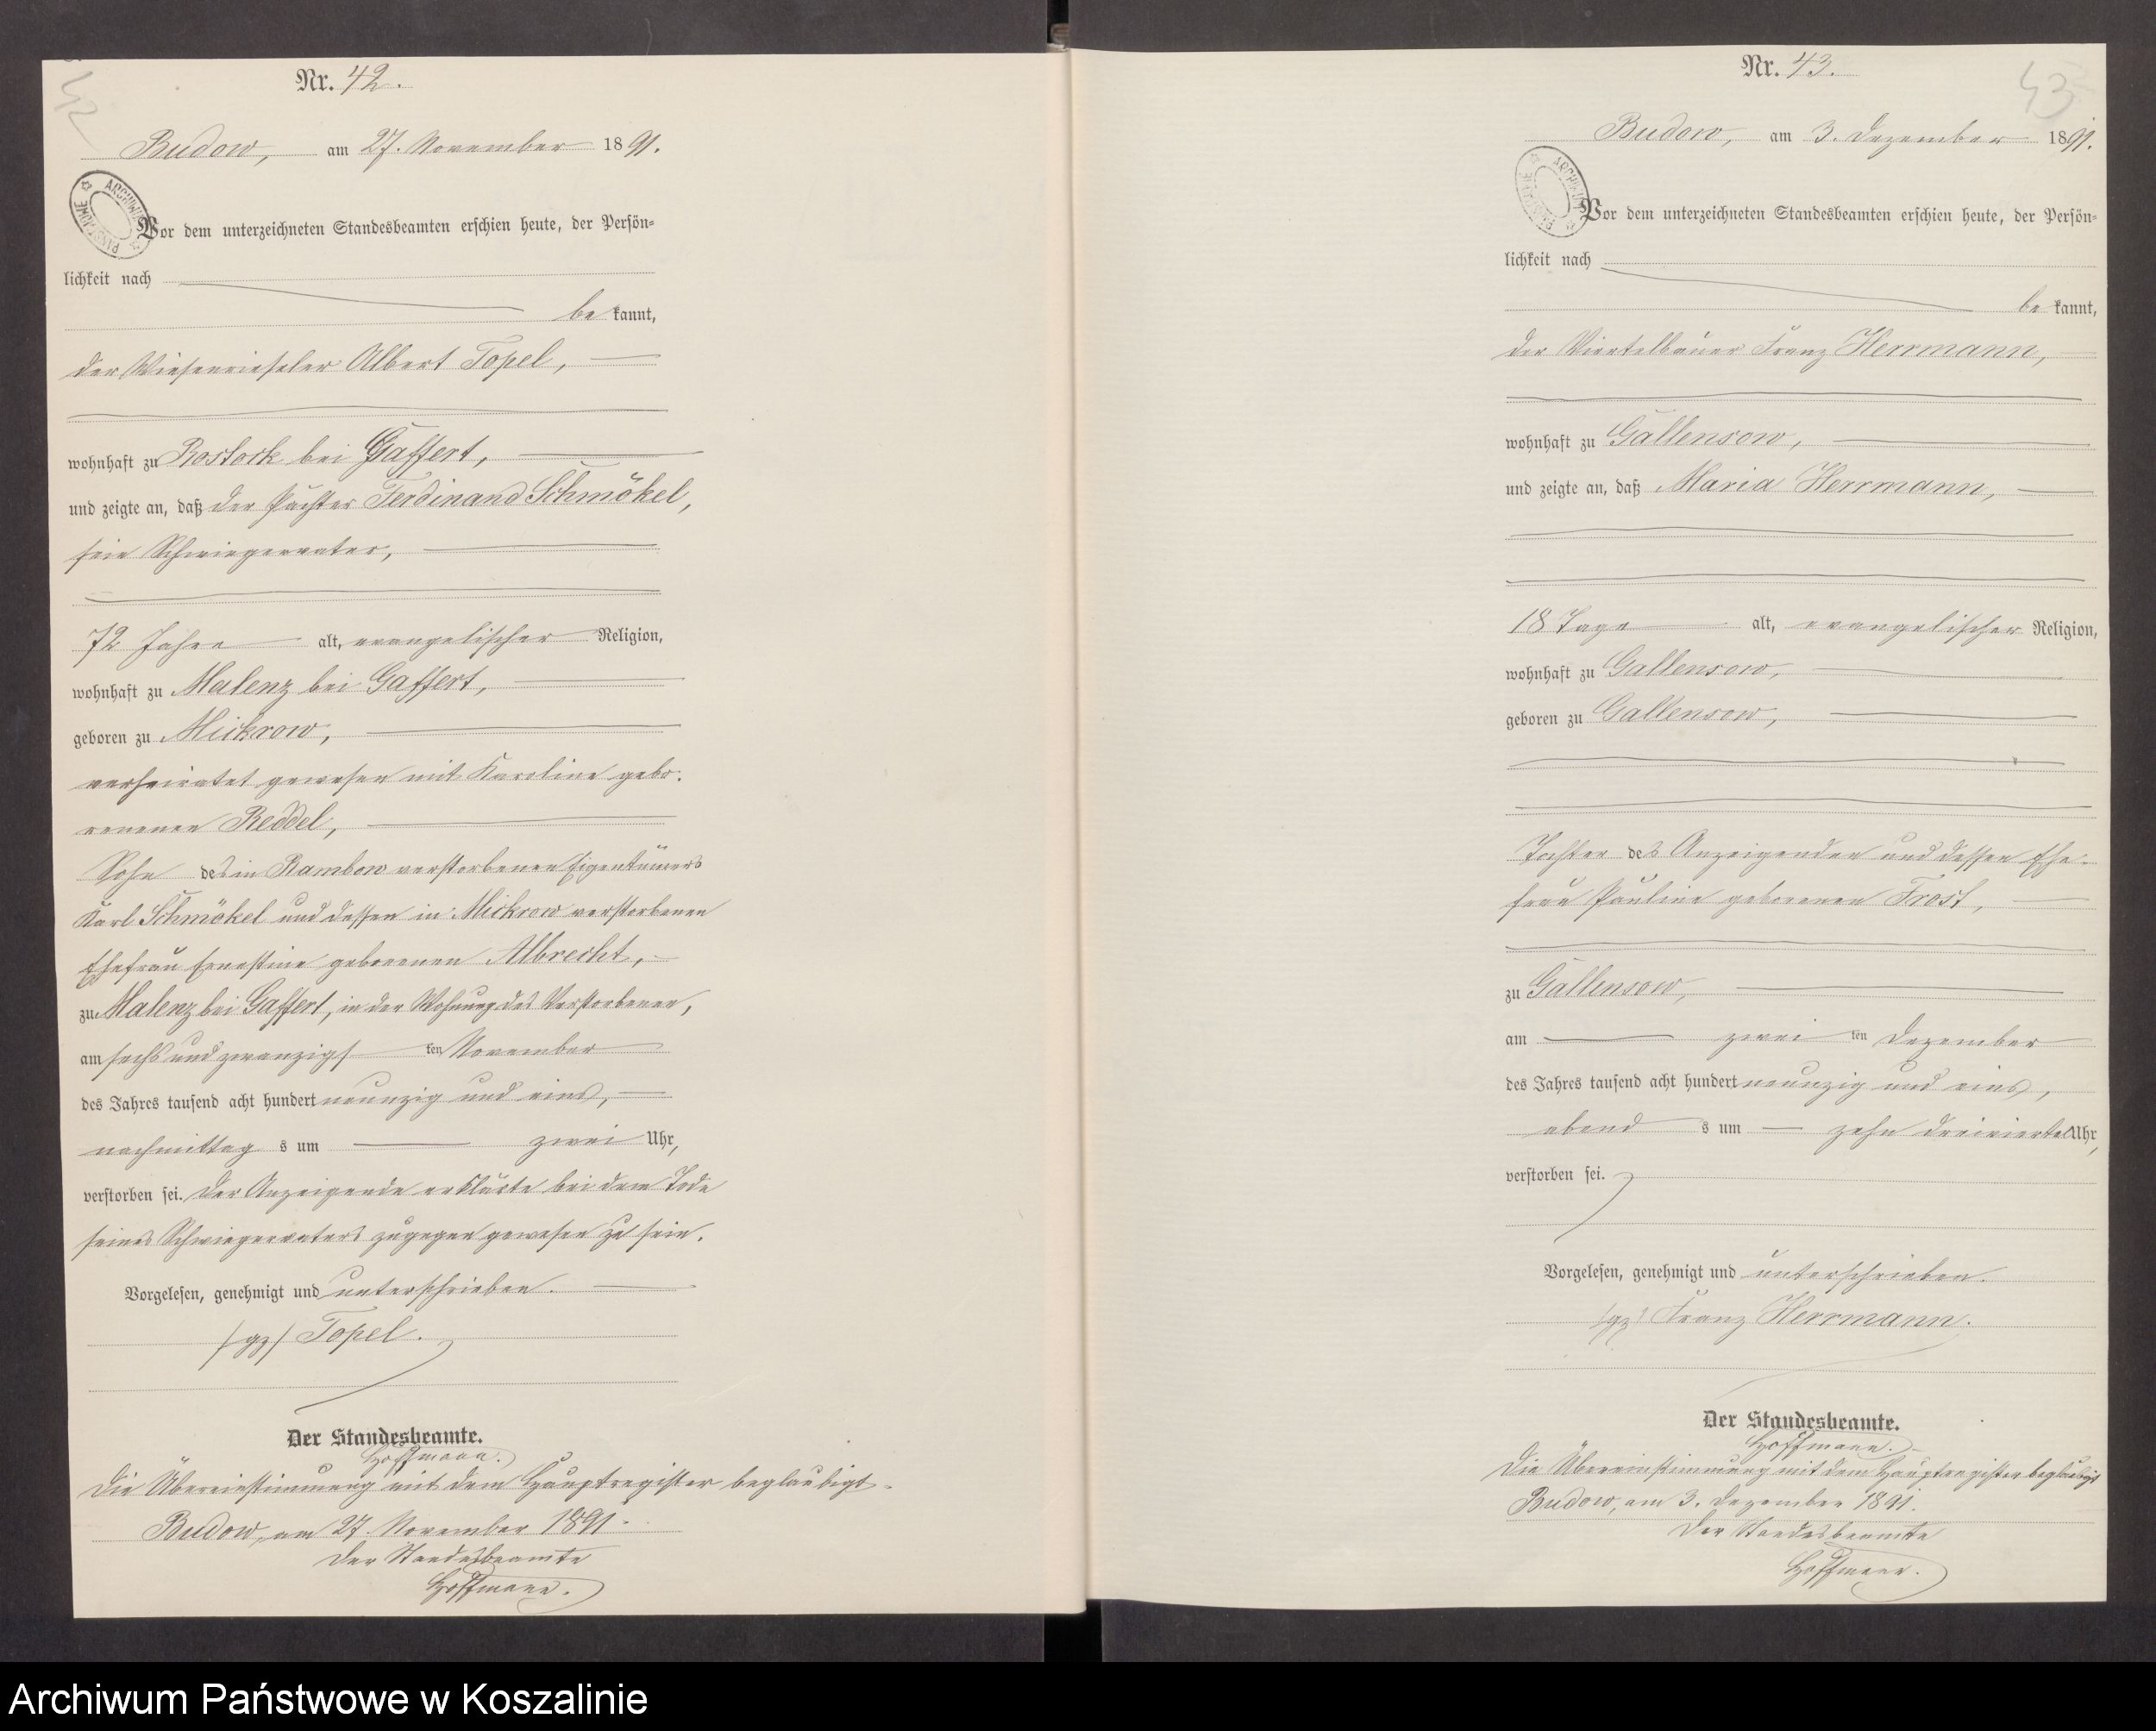 Nr. 42.
42
Budow, am 27. November 1891.
ARCHIWUM PAŃSTWOWE
Vor dem unterzeichneten Standesbeamten erschien heute, der Persön=
lichkeit nach
bekannt,
der Wiesenrieseler Albert Topel,
wohnhaft zu Rostock bei Gaffert,
und zeigte an, daß der Pächter Ferdinand Schmökel,
sein Schwiegervater,
72 Jahre alt, evangelischer Religion,
wohnhaft zu Malenz bei Gaffert,
geboren zu Mickrow,
verheiratet gewesen mit Karoline gebo-
renenen Reddel,
Sohn des in Rambow verstorbenen Eigentümers
Karl Schmökel und dessen in Mickrow verstorbenen
Ehefrau Ernestine geborenen Albrecht,
zu Malenz bei Gaffert, in der Wohnung des Verstorbenen,
am sechs und zwanzigsten November
des Jahres tausend acht hundert neunzig und eins,
nachmittags um zwei Uhr,
verstorben sei. Der Anzeigende erklärte bei dem Tode
seines Schwiegervaters zugegen gewesen zu sein.
Vorgelesen, genehmigt und unterschrieben.
/gz/ Topel.
Der Standesbeamte.
Hoffmann.
Die Übereinstimmung mit dem Hauptregister beglaubigt.
Budow, am 27. November 1891.
Der Standesbeamte
Hoffmann.
Nr. 43.
43
Budow, am 3. Dezember 1891.
ARCHIWUM PAŃSTWOWE
Vor dem unterzeichneten Standesbeamten erschien heute, der Persön=
lichkeit nach
bekannt,
der Viertelbauer Franz Herrmann,
wohnhaft zu Gallensow,
und zeigte an, daß Maria Herrmann,
18 Tage alt, evangelischer Religion,
wohnhaft zu Gallensow,
geboren zu Gallensow,
Tochter des Anzeigenden und dessen Ehe-
frau Pauline geborenen Frost,
zu Gallensow,
am zweiten Dezember
des Jahres tausend acht hundert neunzig und eins,
abends um zehn dreiviertel Uhr,
verstorben sei.
Vorgelesen, genehmigt und unterschrieben.
/gz/ Franz Herrmann.
Der Standesbeamte.
Hoffmann.
Die Übereinstimmung mit dem Hauptregister beglaubigt
Budow, am 3. Dezember 1891.
Der Standesbeamte
Hoffmann.
Archiwum Państwowe w Koszalinie